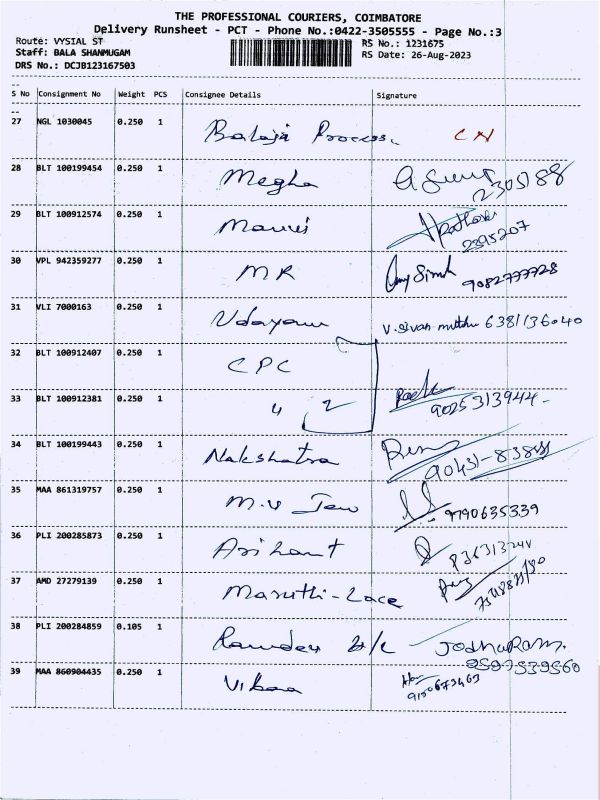 THE PROFESSIONAL COURIERS, COIMBATORE
Delivery Runsheet - PCT - Phone No.:0422-3505555 - Page No.:3
Route: VYSIAL ST RS No.: 1231675
Staff: BALA SHANMUGAM RS Date: 26-Aug-2023
DRS No.: DCJB123167503
S No Consignment No Weight PCS Consignee Details Signature
27 NGL 1030045 0.250 1 Balaji Process. CN
28 BLT 100199454 0.250 1 Megha
2305188
29 BLT 100912574 0.250 1
2895207
30 VPL 942359277 0.250 1 MR 9082777728
31 VLI 7000163 0.250 1 Udayam V. Sivan muthu 6381136040
32 BLT 100912407 0.250 1 CPC
33 BLT 100912381 0.250 1 4 2
9025313944-
34 BLT 100199443 0.250 1 Nakshatra
35 MAA 861319757 0.250 1 M.V
9790635339
36 PLI 200285873 0.250 1 Arihant
37 AMD 27279139 0.250 1 Maruthi-Lace
38 PLI 200284859 0.105 1 Ramdev JODHARAM.
9597539560
39 MAA 860904435 0.250 1